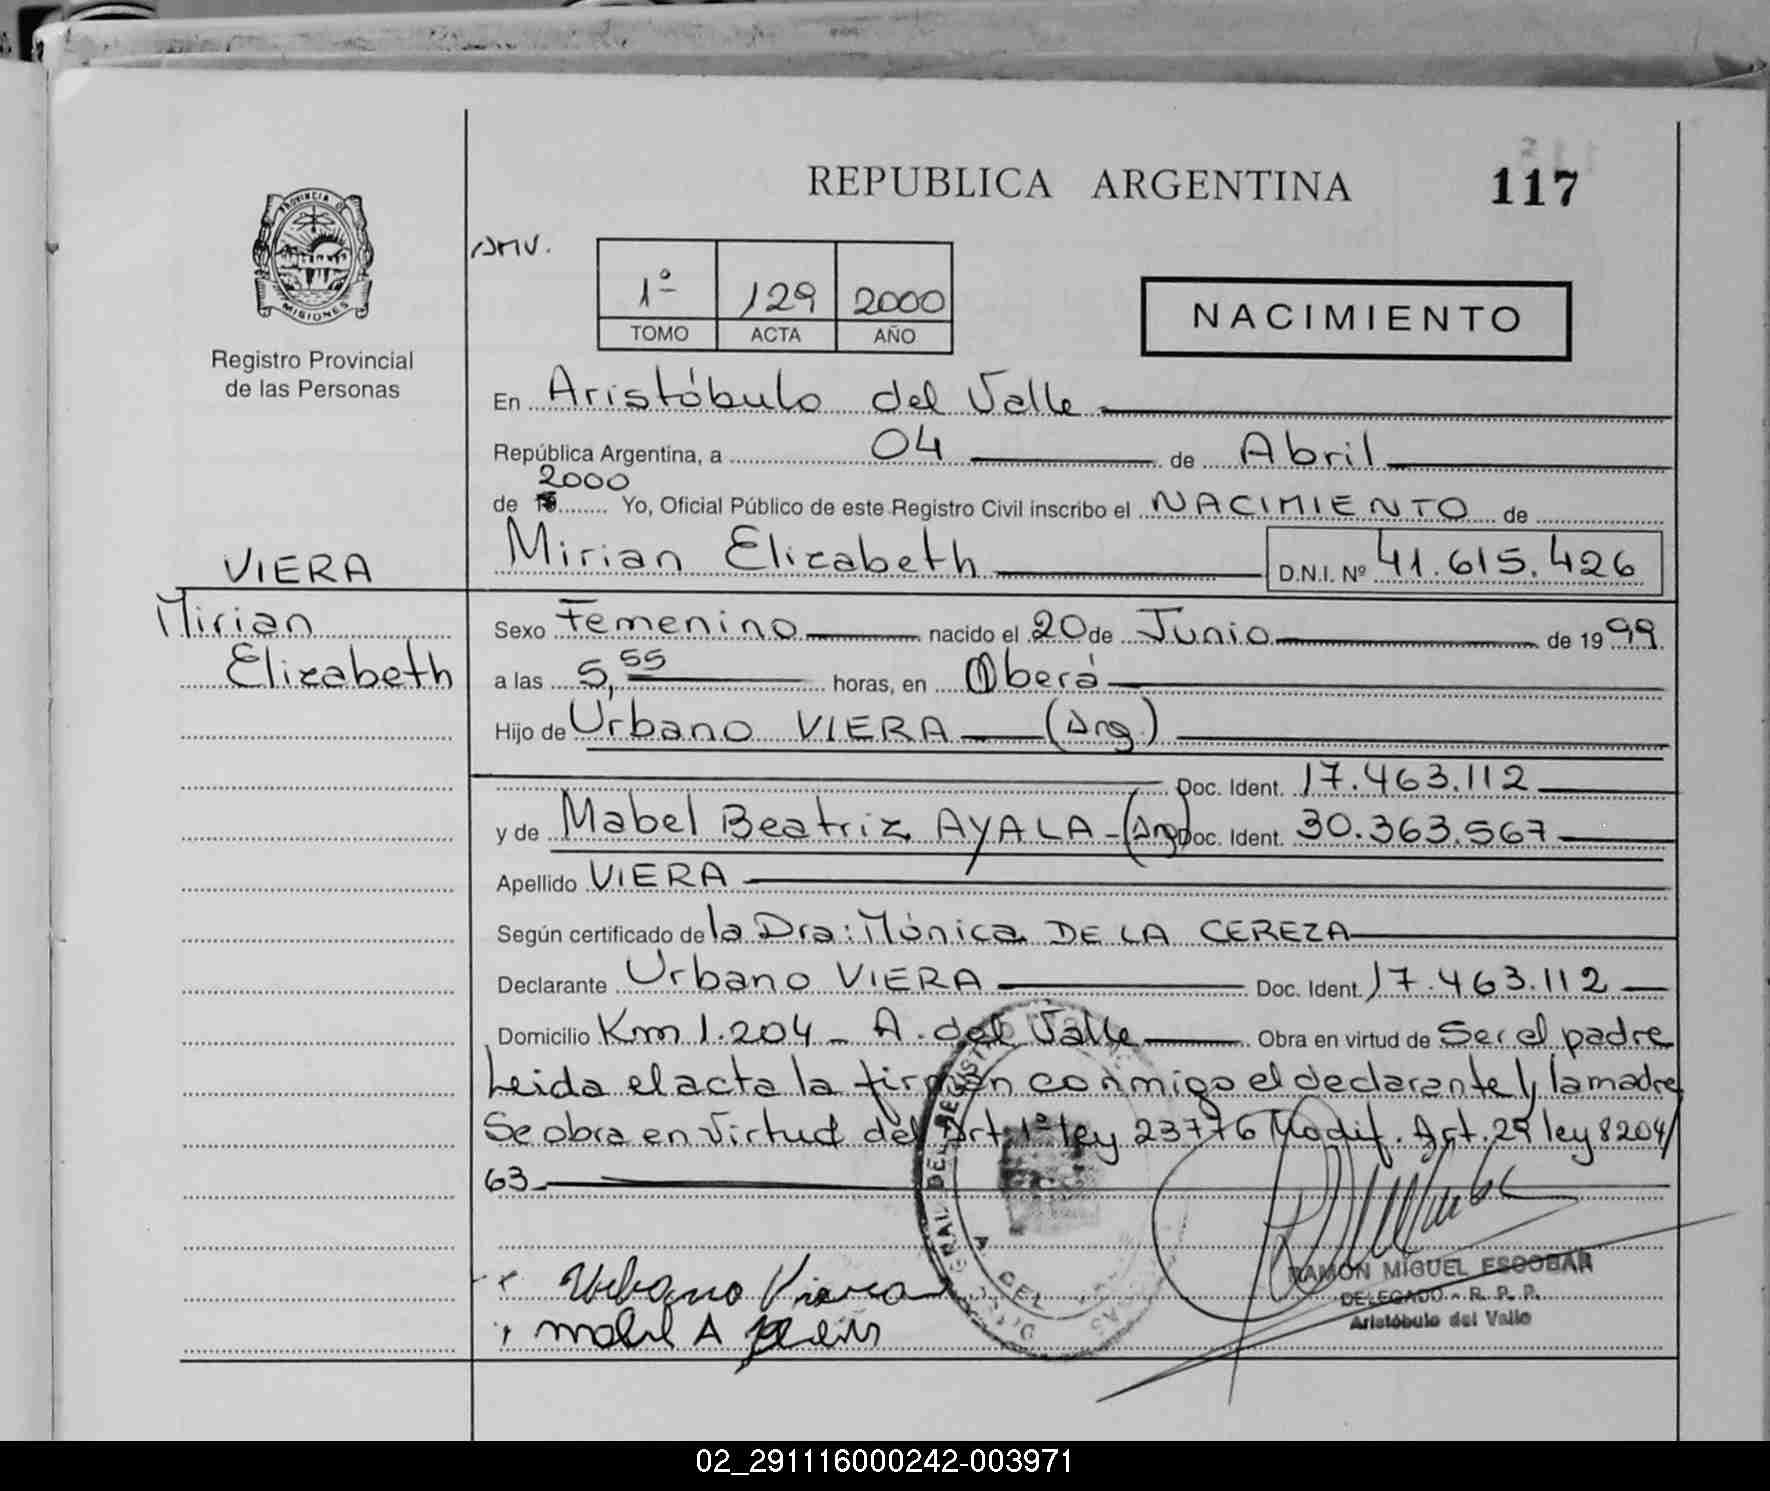 REPUBLICA ARGENTINA 117
PROVINCIA D
MISIONES
Registro Provincial
de las Personas
1º 129 2000
TOMO ACTA AÑO
NACIMIENTO
En Aristóbulo del Valle
República Argentina, a 04 de Abril
2000
de Yo, Oficial Público de este Registro Civil inscribo el NACIMIENTO de
Mirian Elizabeth D.N.I. Nº 41.615.426
VIERA
Mirian
Elizabeth
Sexo Femenino nacido el 20 de Junio de 1999
a las 5,55 horas, en Oberá
Hijo de Urbano VIERA (Arg.)
Doc. Ident. 17.463.112
y de Mabel Beatriz AYALA - (Arg) Doc. Ident. 30.363.567
Apellido VIERA
Según certificado de la Dra: Mónica DE LA CEREZA
Declarante Urbano VIERA Doc. Ident. 17.463.112
Domicilio Km 1.204 - A. del Valle Obra en virtud de Ser el padre
Leida el acta la firman conmigo el declarante y la madre
Se obra en Virtud del Art. 1º ley 23776 Modif. Art. 29 ley 8204/
63
Urbano Viera
RAMON MIGUEL ESCOBAR
DELEGADO - R. P. P.
Aristóbulo del Valle
02_291116000242-003971